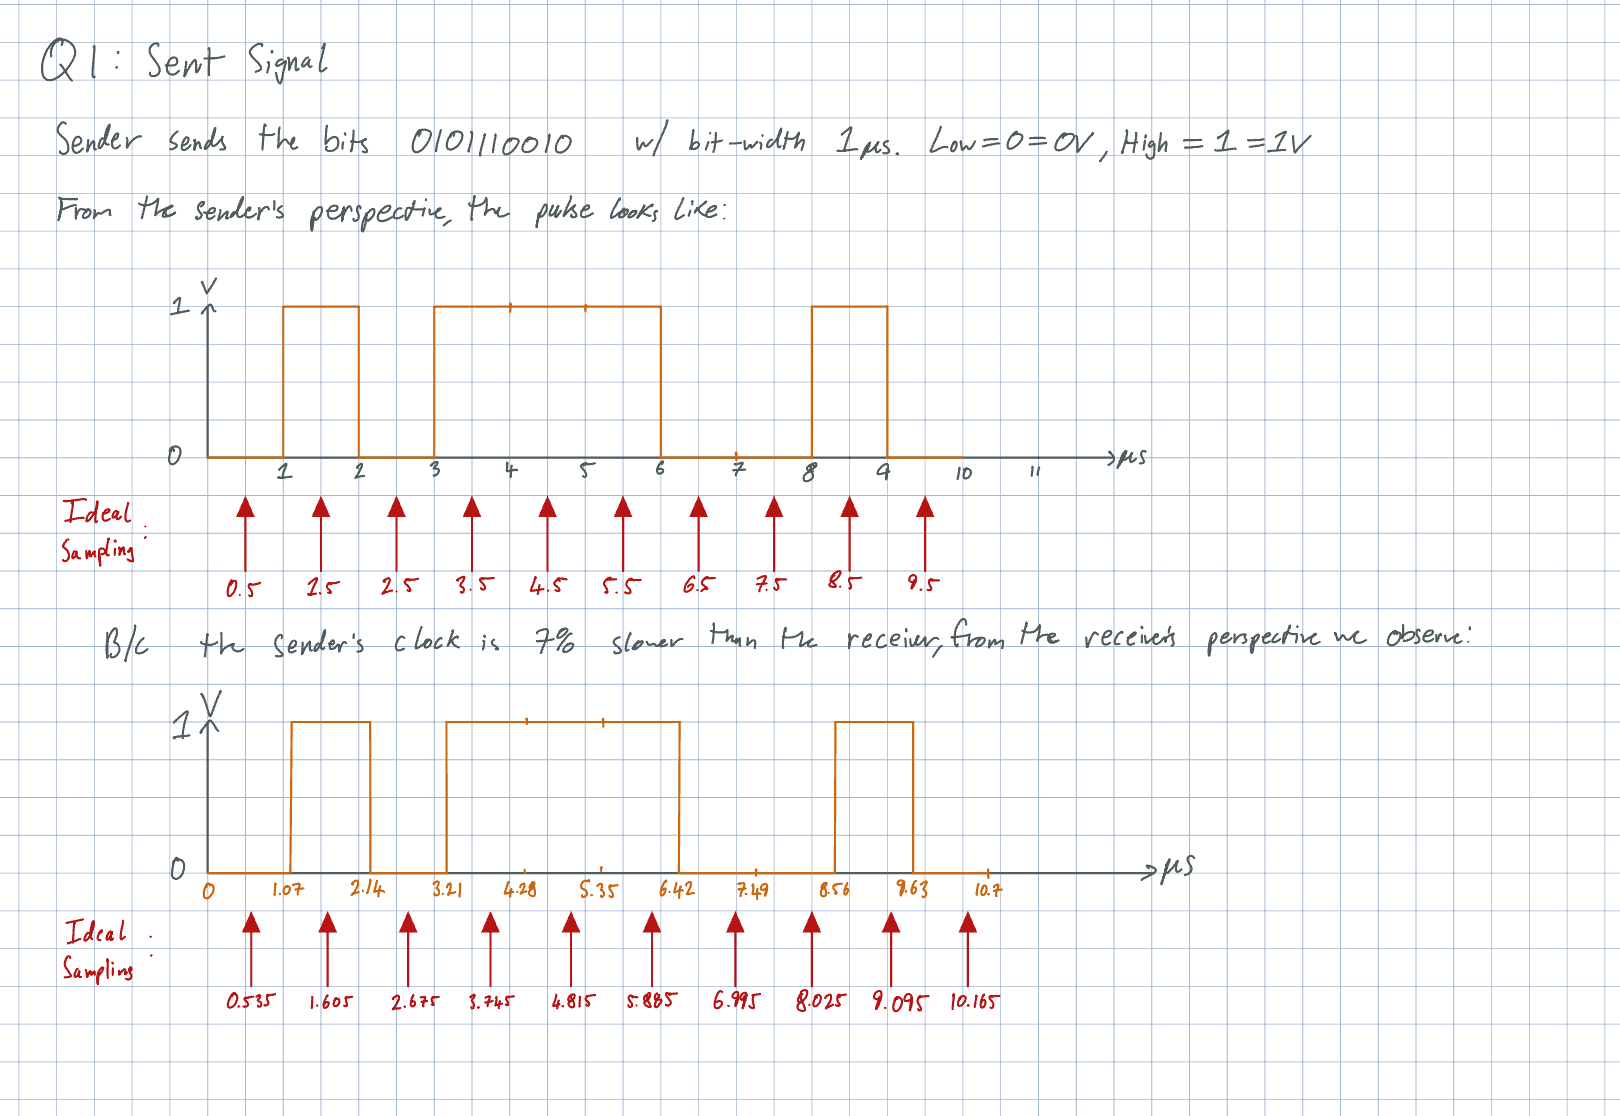 Q1: Sent Signal
Sender sends the bits 0101110010 w/ bit-width 1μs. Low=0=0V, High = 1 =1V
From the sender's perspective, the pulse looks like:
V
1
0
1 2 3 4 5 6 7 8 9 10 11 μs
Ideal
Sampling:
0.5 1.5 2.5 3.5 4.5 5.5 6.5 7.5 8.5 9.5
B/c the sender's clock is 7% slower than the receiver, from the receiver's perspective we observe:
V
1
0
μs
0 1.07 2.14 3.21 4.28 5.35 6.42 7.49 8.56 9.63 10.7
Ideal
Sampling:
0.535 1.605 2.675 3.745 4.815 5.885 6.995 8.025 9.095 10.165